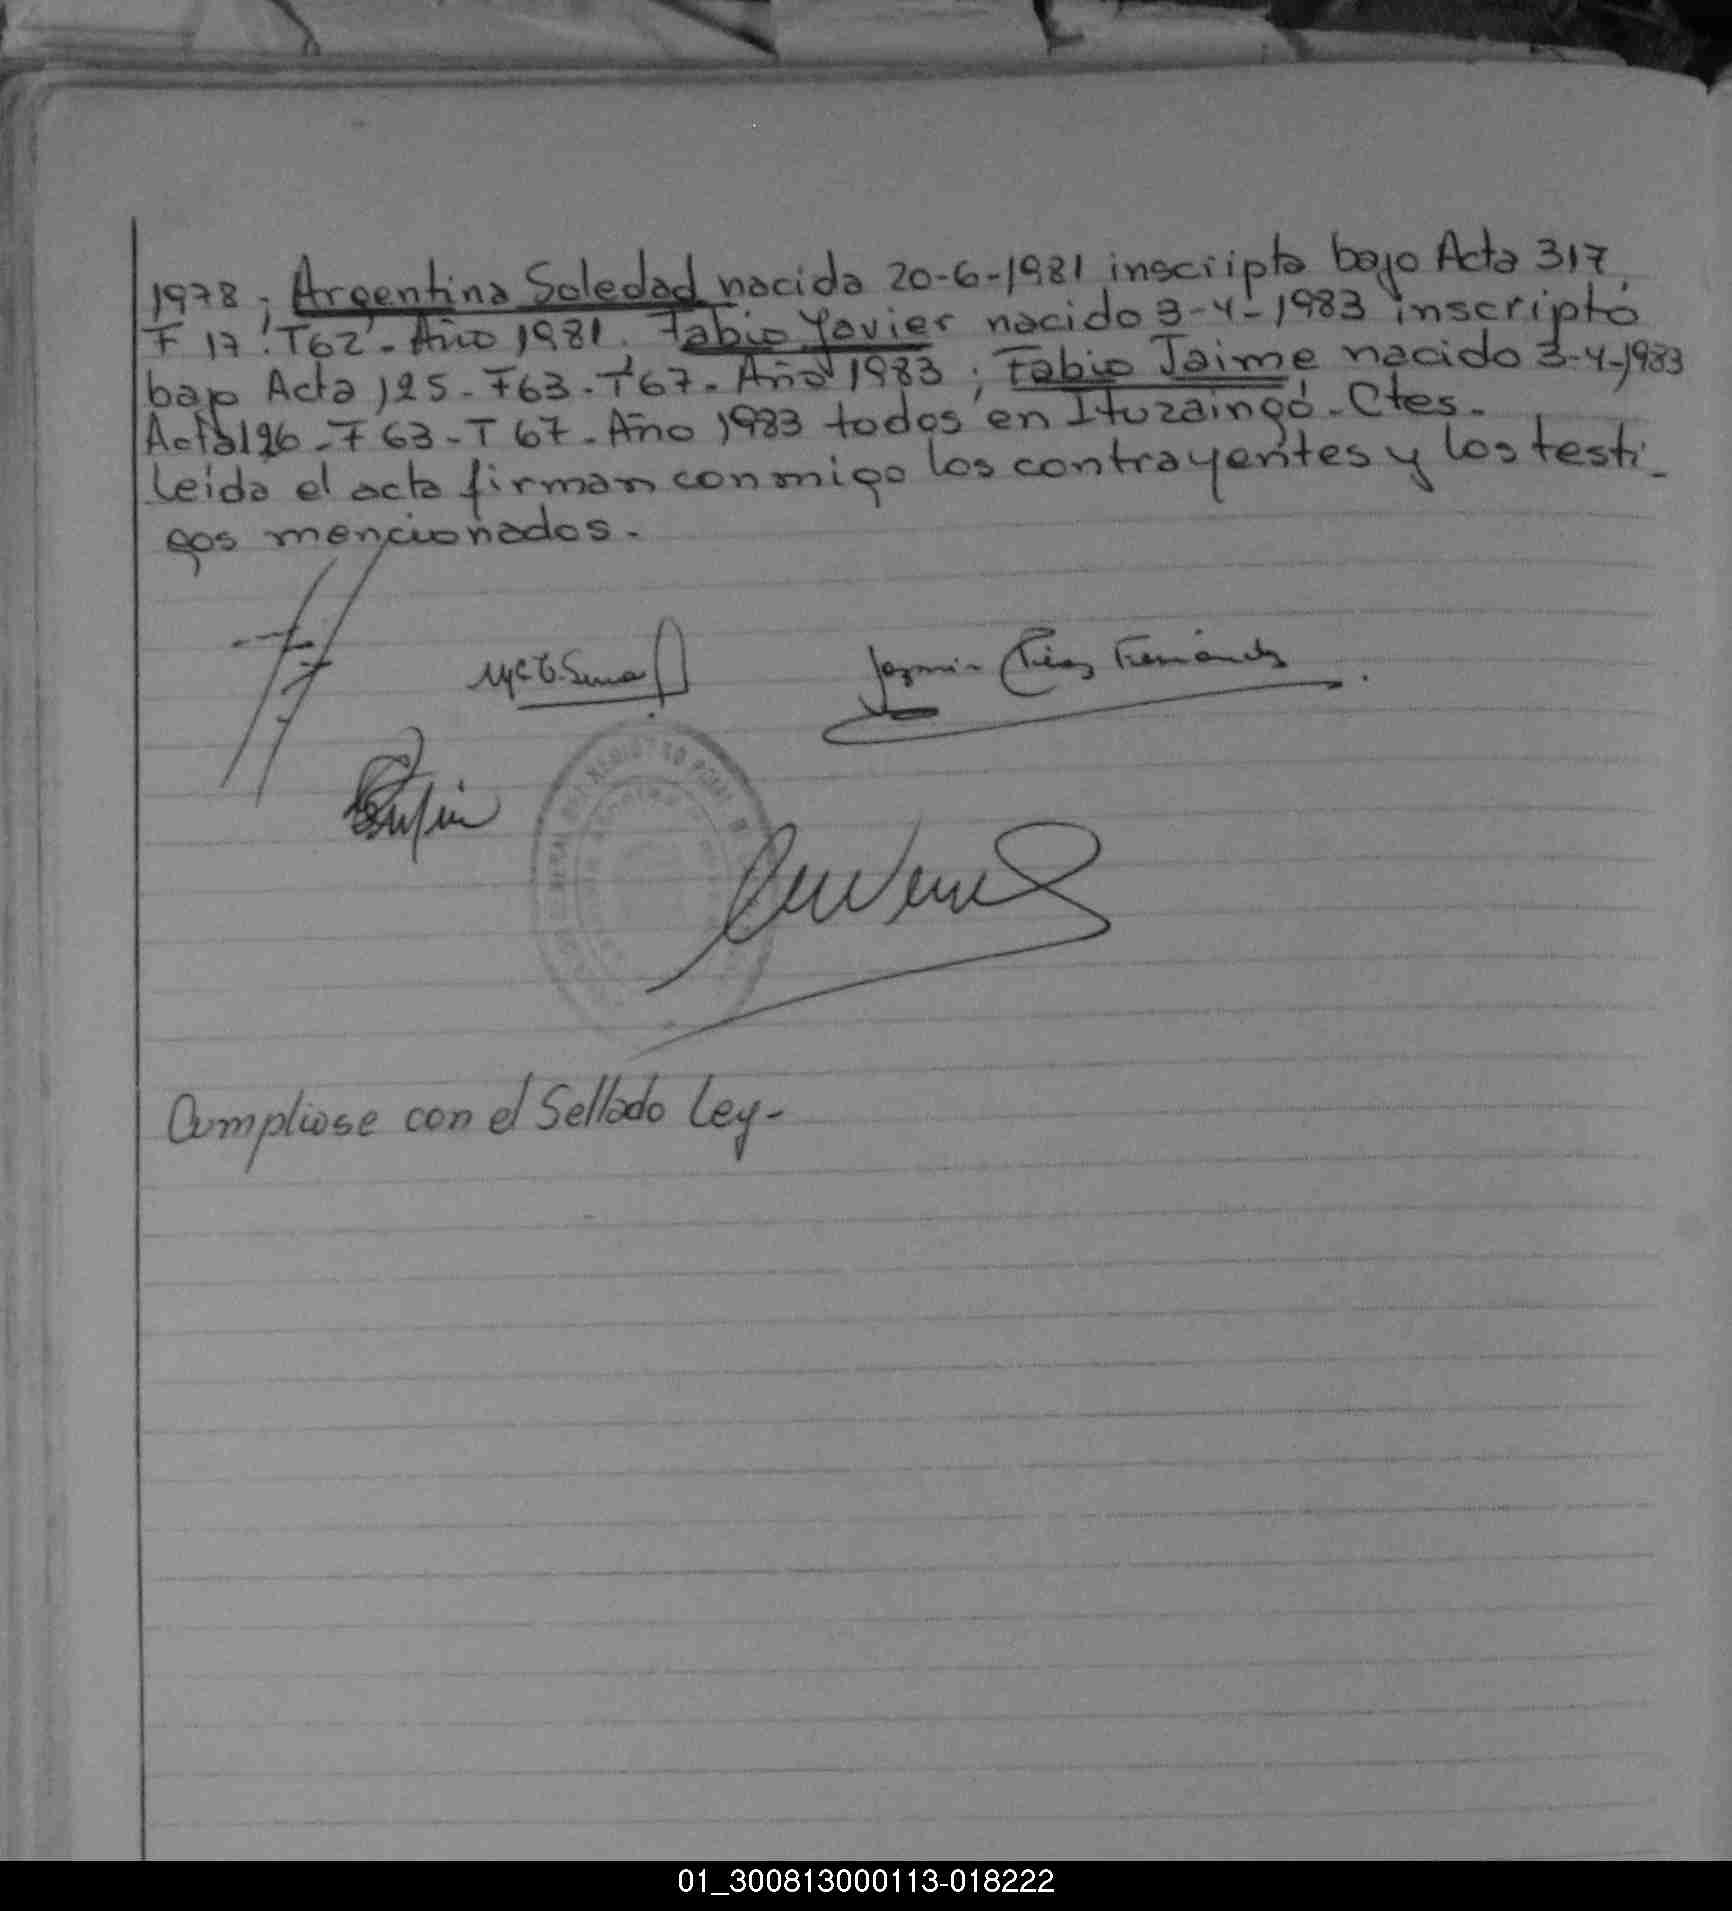 1978, Argentina Soledad nacida 20-6-1981 inscripta bajo Acta 317,
F 17. T62 - Año 1981. Fabio Yavier nacido 3-4-1983 inscripto
bajo Acta 125 - F63 - T67 - Año 1983; Fabio Jaime nacido 3-4-1983
Acta 126 - F 63 - T 67 - Año 1983 todos en Ituzaingó - Ctes.
Leída el acta firman conmigo los contrayentes y los testi-
gos mencionados.-
Fernández
Cumpliose con el Sellado Ley-
01_300813000113-018222